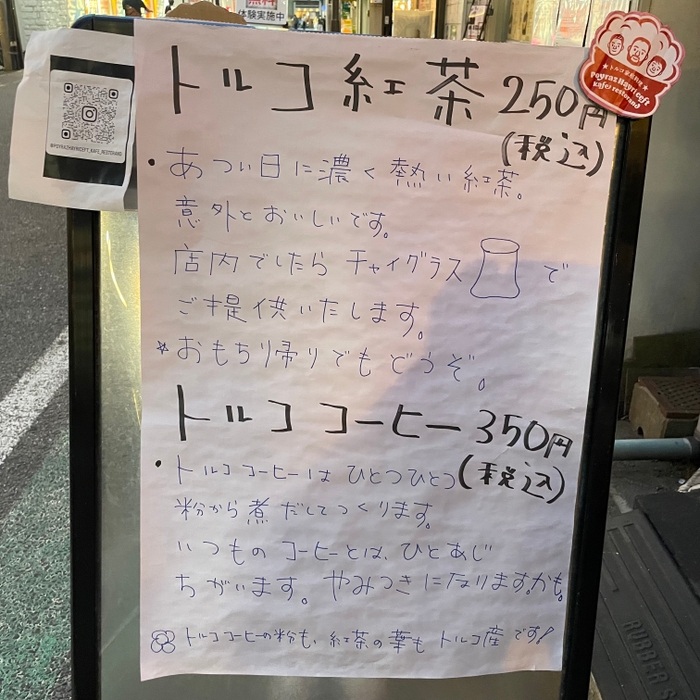 無料
体験実施中
トルコ紅茶 250円
(税込)
・あつい日に濃く熱い紅茶。
意外とおいしいです。
店内でしたら チャイグラス で
ご提供いたします。
*おもちり帰りでもどうぞ。
トルココーヒー 350円
(税込)
・トルココーヒーは ひとつひとつ
粉から煮だしてつくります。
いつもの コーヒーとは、ひとあじ
ちがいます。やみつきになります。かも。
トルココーヒーの粉も、紅茶の葉も トルコ産です!
★トルコ家庭料理★
Poyraz Hayri Ceft
kafe & restorand
@POYRAZHAYRICEFT_KAFE_RESTORAND
RUBBER S